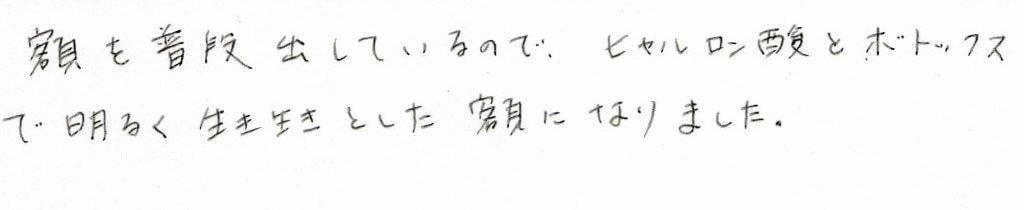 額を普段出しているので、ヒャルロン酸とボトックス
で明るく生き生きとした額になりました。